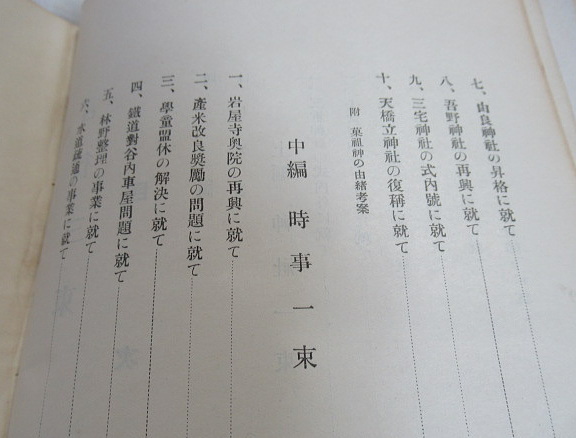 七、由良神社の昇格に就て
八、吾野神社の再興に就て
九、三宅神社の式內號に就て
十、天橋立神社の復稱に就て
附 菓祖神の由緒考案
中編 時事一束
一、岩屋寺奧院の再興に就て
二、產米改良奬勵の問題に就て
三、學童盟休の解決に就て
四、鐵道對谷內車屋問題に就て
五、林野整理の事業に就て
六、水道疏通の事業に就て